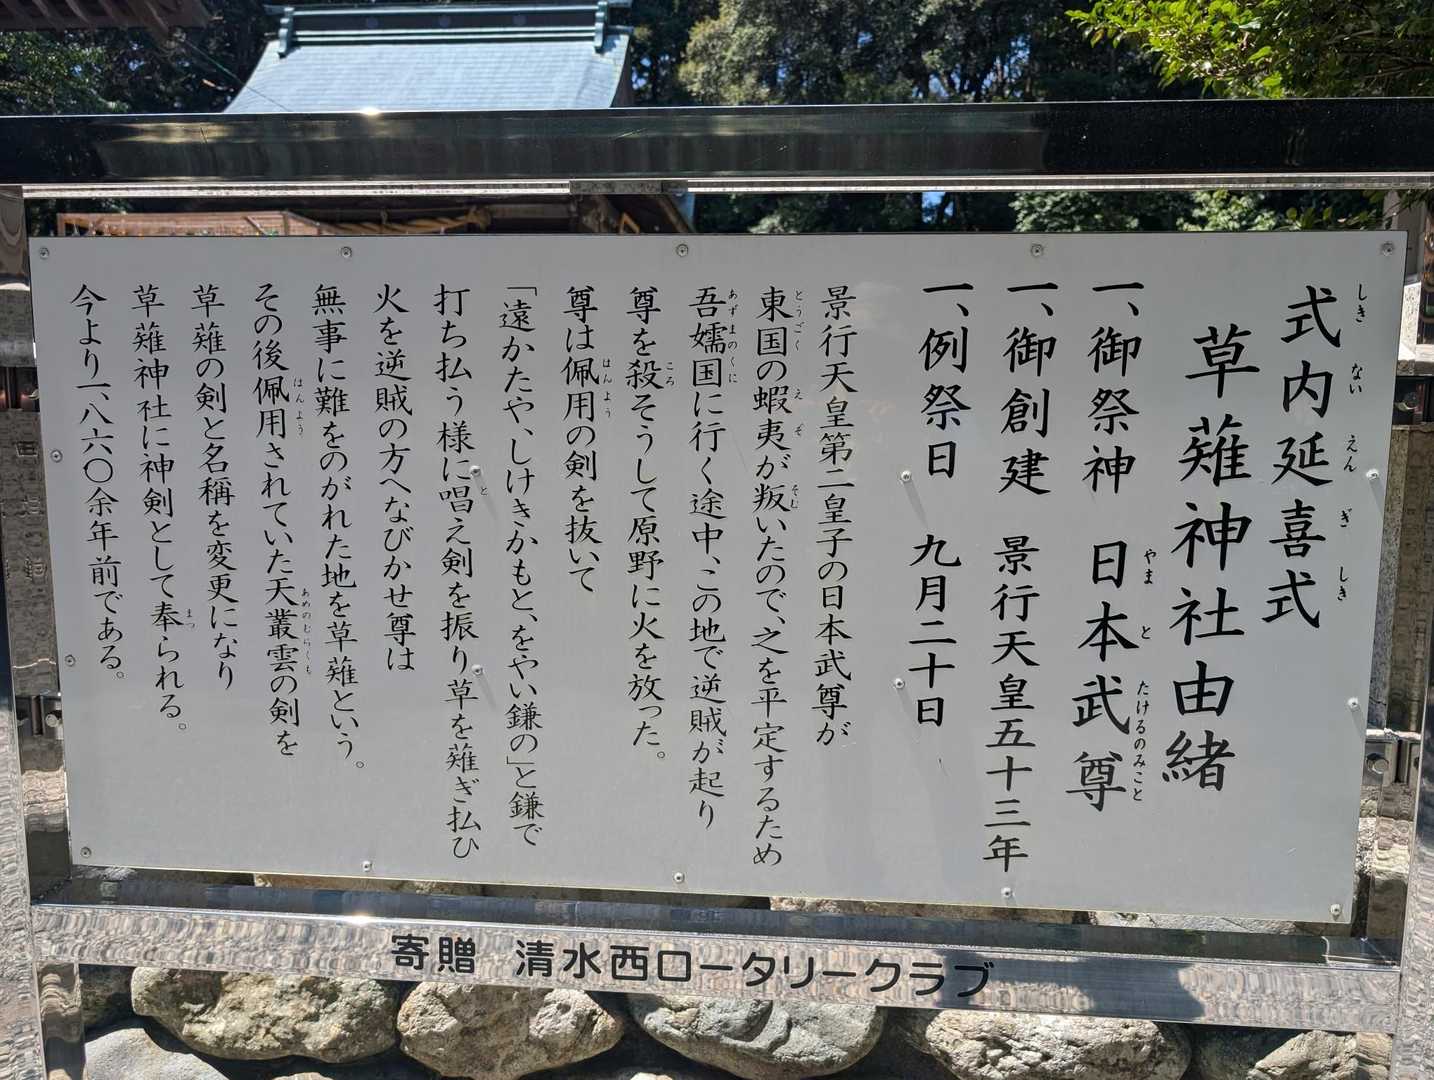 式内延喜式
草薙神社由緒
一、御祭神 日本武尊
一、御創建 景行天皇五十三年
一、例祭日 九月二十日
景行天皇第二皇子の日本武尊が
東国の蝦夷が叛いたので、之を平定するため
吾嬬国に行く途中、この地で逆賊が起り
尊を殺そうして原野に火を放った。
尊は佩用の剣を抜いて
「遠かたや、しけきかもと、をやい鎌の」と鎌で
打ち払う様に唱え剣を振り草を薙ぎ払ひ
火を逆賊の方へなびかせ尊は
無事に難をのがれた地を草薙という。
その後佩用されていた天叢雲の剣を
草薙の剣と名稱を変更になり
草薙神社に神剣として奉られる。
今より一、八六〇余年前である。
寄贈 清水西ロータリークラブ